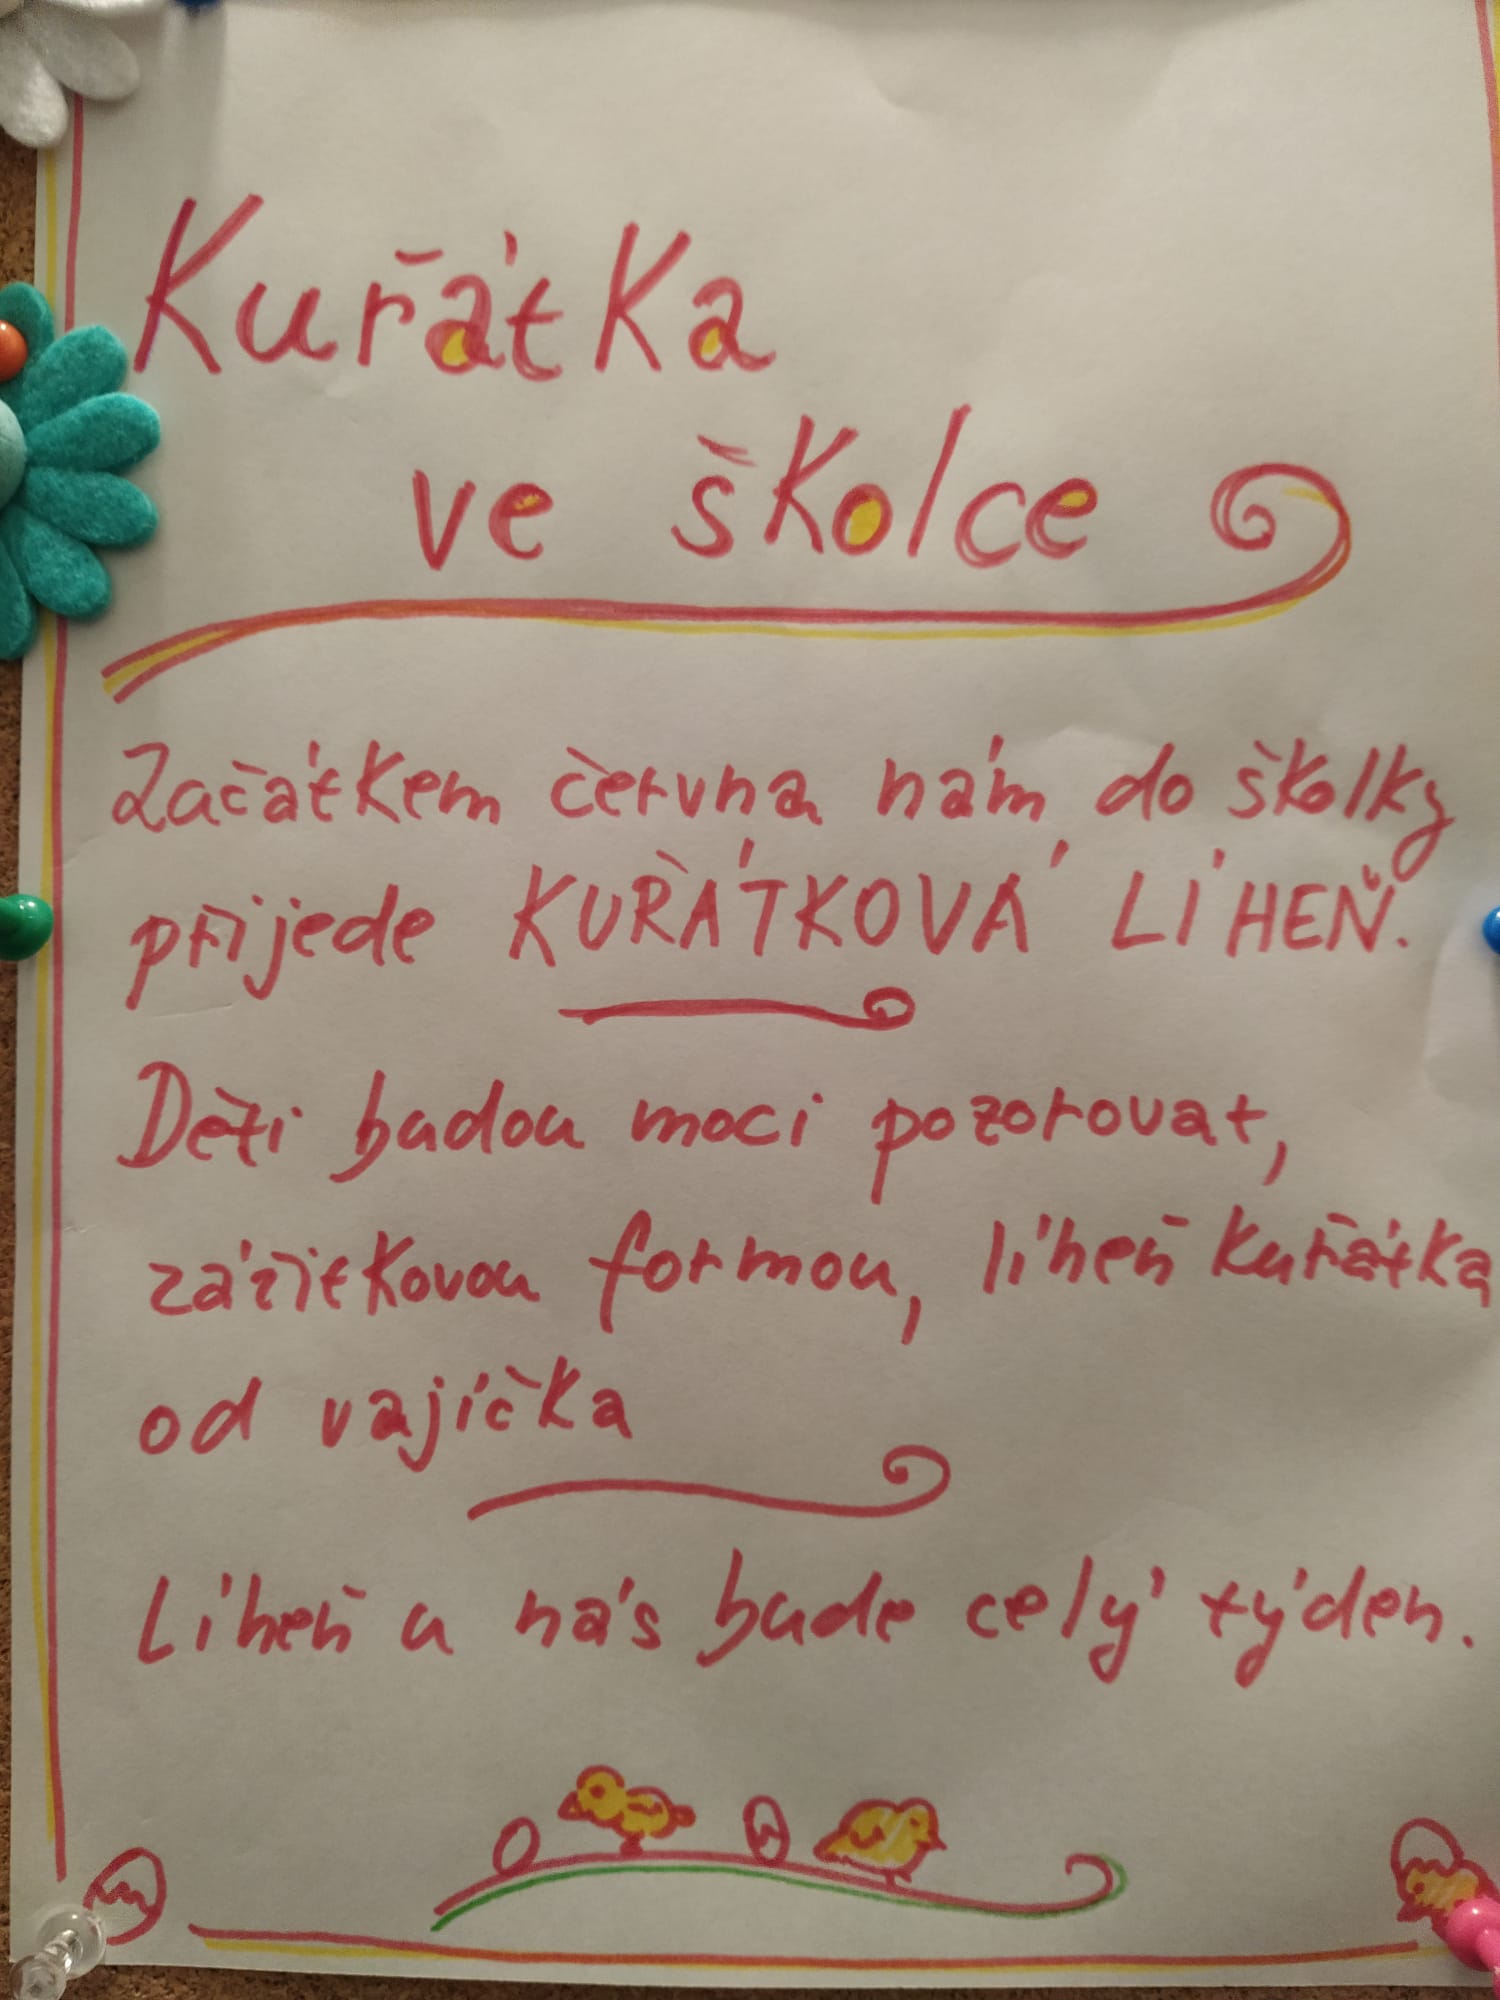 Kuřátka
ve školce
Začátkem června nám do školky
přijede KUŘÁTKOVÁ LÍHEŇ.
Děti budou moci pozorovat,
zážitkovou formou, líheň kuřátka
od vajíčka
Líheň u nás bude celý týden.